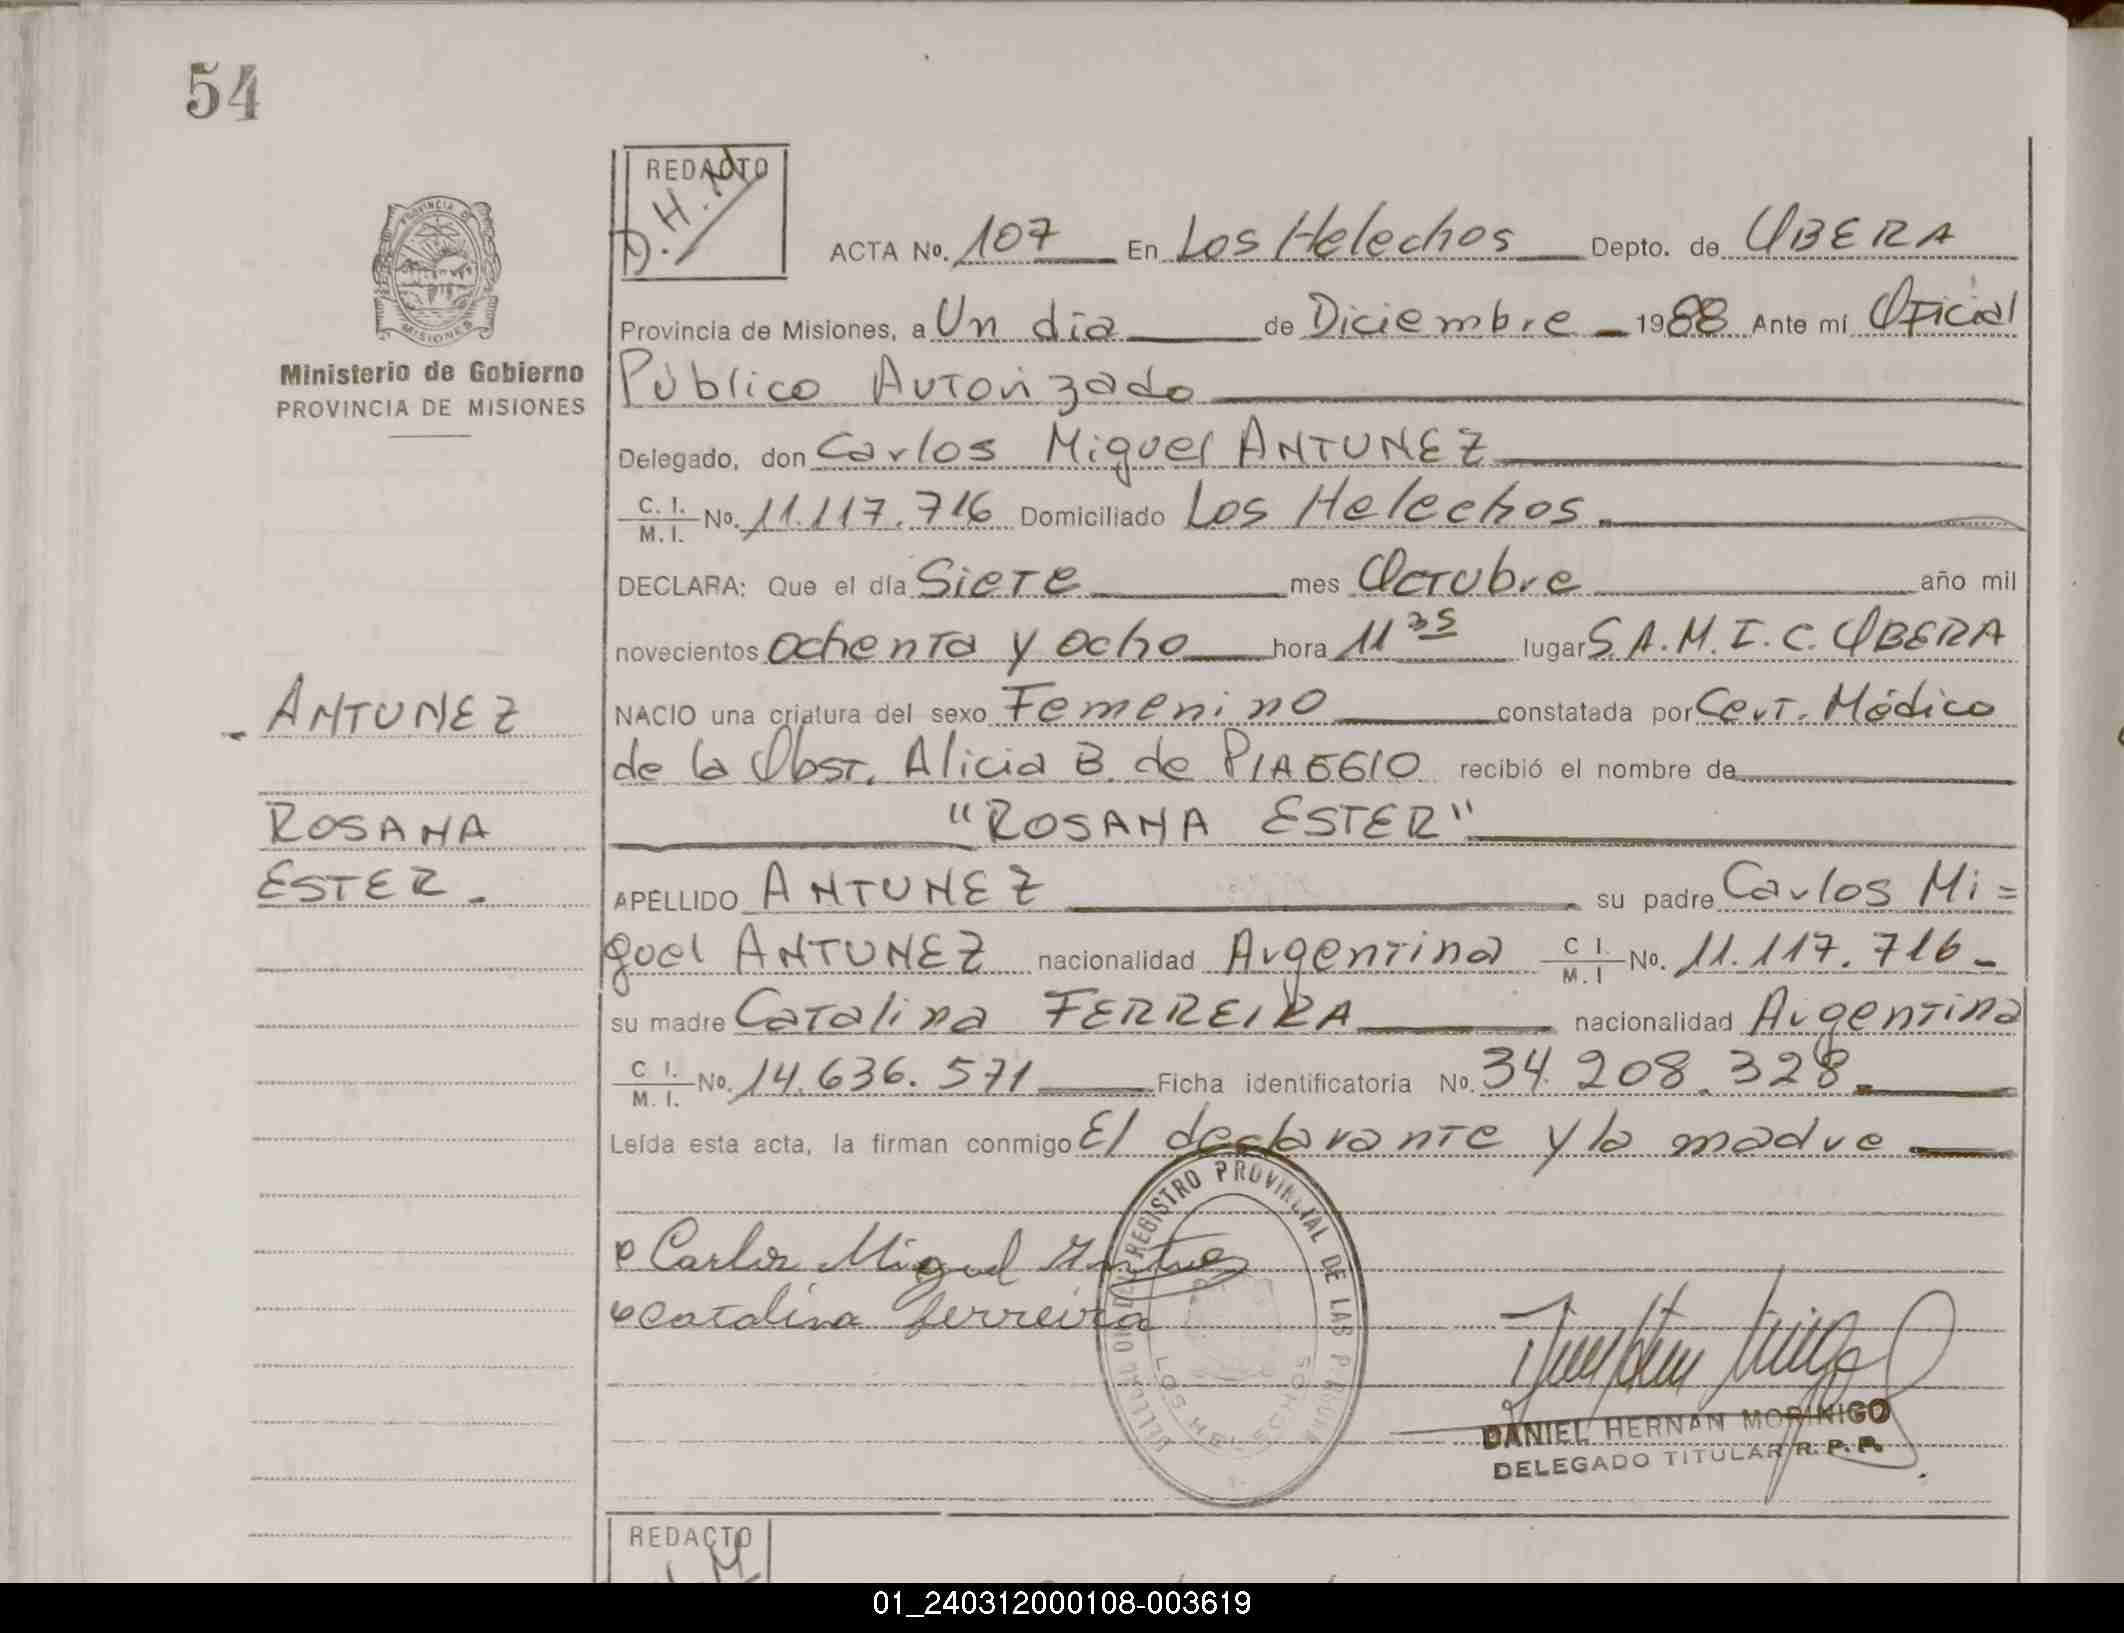 54
REDACTO
D.H.M
ACTA No. 107 En Los Helechos Depto. de OBERA
Provincia de Misiones, a Un día de Diciembre 1988 Ante mí Oficial
Público Autorizado
Delegado, don Carlos Miguel ANTUNEZ
C. I. M. I. No. 11.117.716 Domiciliado Los Helechos.
DECLARA: Que el día Siete mes Octubre año mil
novecientos ochenta y ocho hora 11 35 lugar S.A.M.I.C. OBERA
NACIO una criatura del sexo Femenino constatada por Cert. Médico
de la Obst. Alicia B. de PIAGGIO recibió el nombre de
"ROSANA ESTER"
APELLIDO ANTUNEZ su padre Carlos Mi=
guel ANTUNEZ nacionalidad Argentina C I. M. I No. 11.117.716-
su madre Catalina FERREIRA nacionalidad Argentina
C I. M. I. No. 14.636.571 Ficha identificatoria No. 34.208.328.
Leída esta acta, la firman conmigo El declarante y la madre
Carlos Miguel Antunez
Catalina ferreira
REGISTRO PROVINCIAL DE LAS
LOS HELECHOS
DANIEL HERNAN MORINIGO
DELEGADO TITULAR R. P. P.
PROVINCIA DE
MISIONES
Ministerio de Gobierno
PROVINCIA DE MISIONES
- ANTUNEZ
ROSANA
ESTER.
REDACTO
01_240312000108-003619